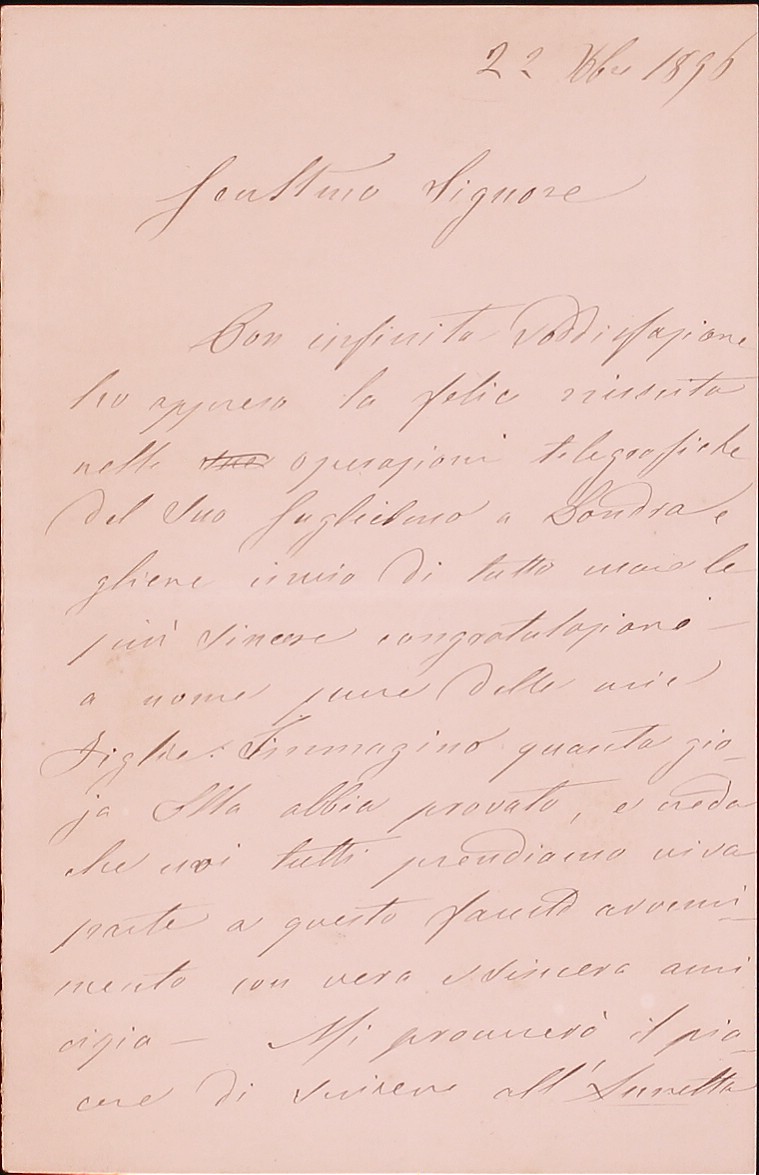 22 Xbre 1896
Gentilmo Signore
Con infinita soddisfazione
ho appreso la felice riuscita
nelle sue operazioni telegrafiche
del suo Guglielmo a Londra e
gliene invio di tutto cuore le
più sincere congratulazioni -
a nome pure delle mie
Figlie. Immagino quanta gio-
ja Ella abbia provato, e creda
che noi tutti prendiamo viva
parte a questo fausto avveni-
mento con vera e sincera ami
cizia - Mi procurerò il pia-
cere di scrivere all'